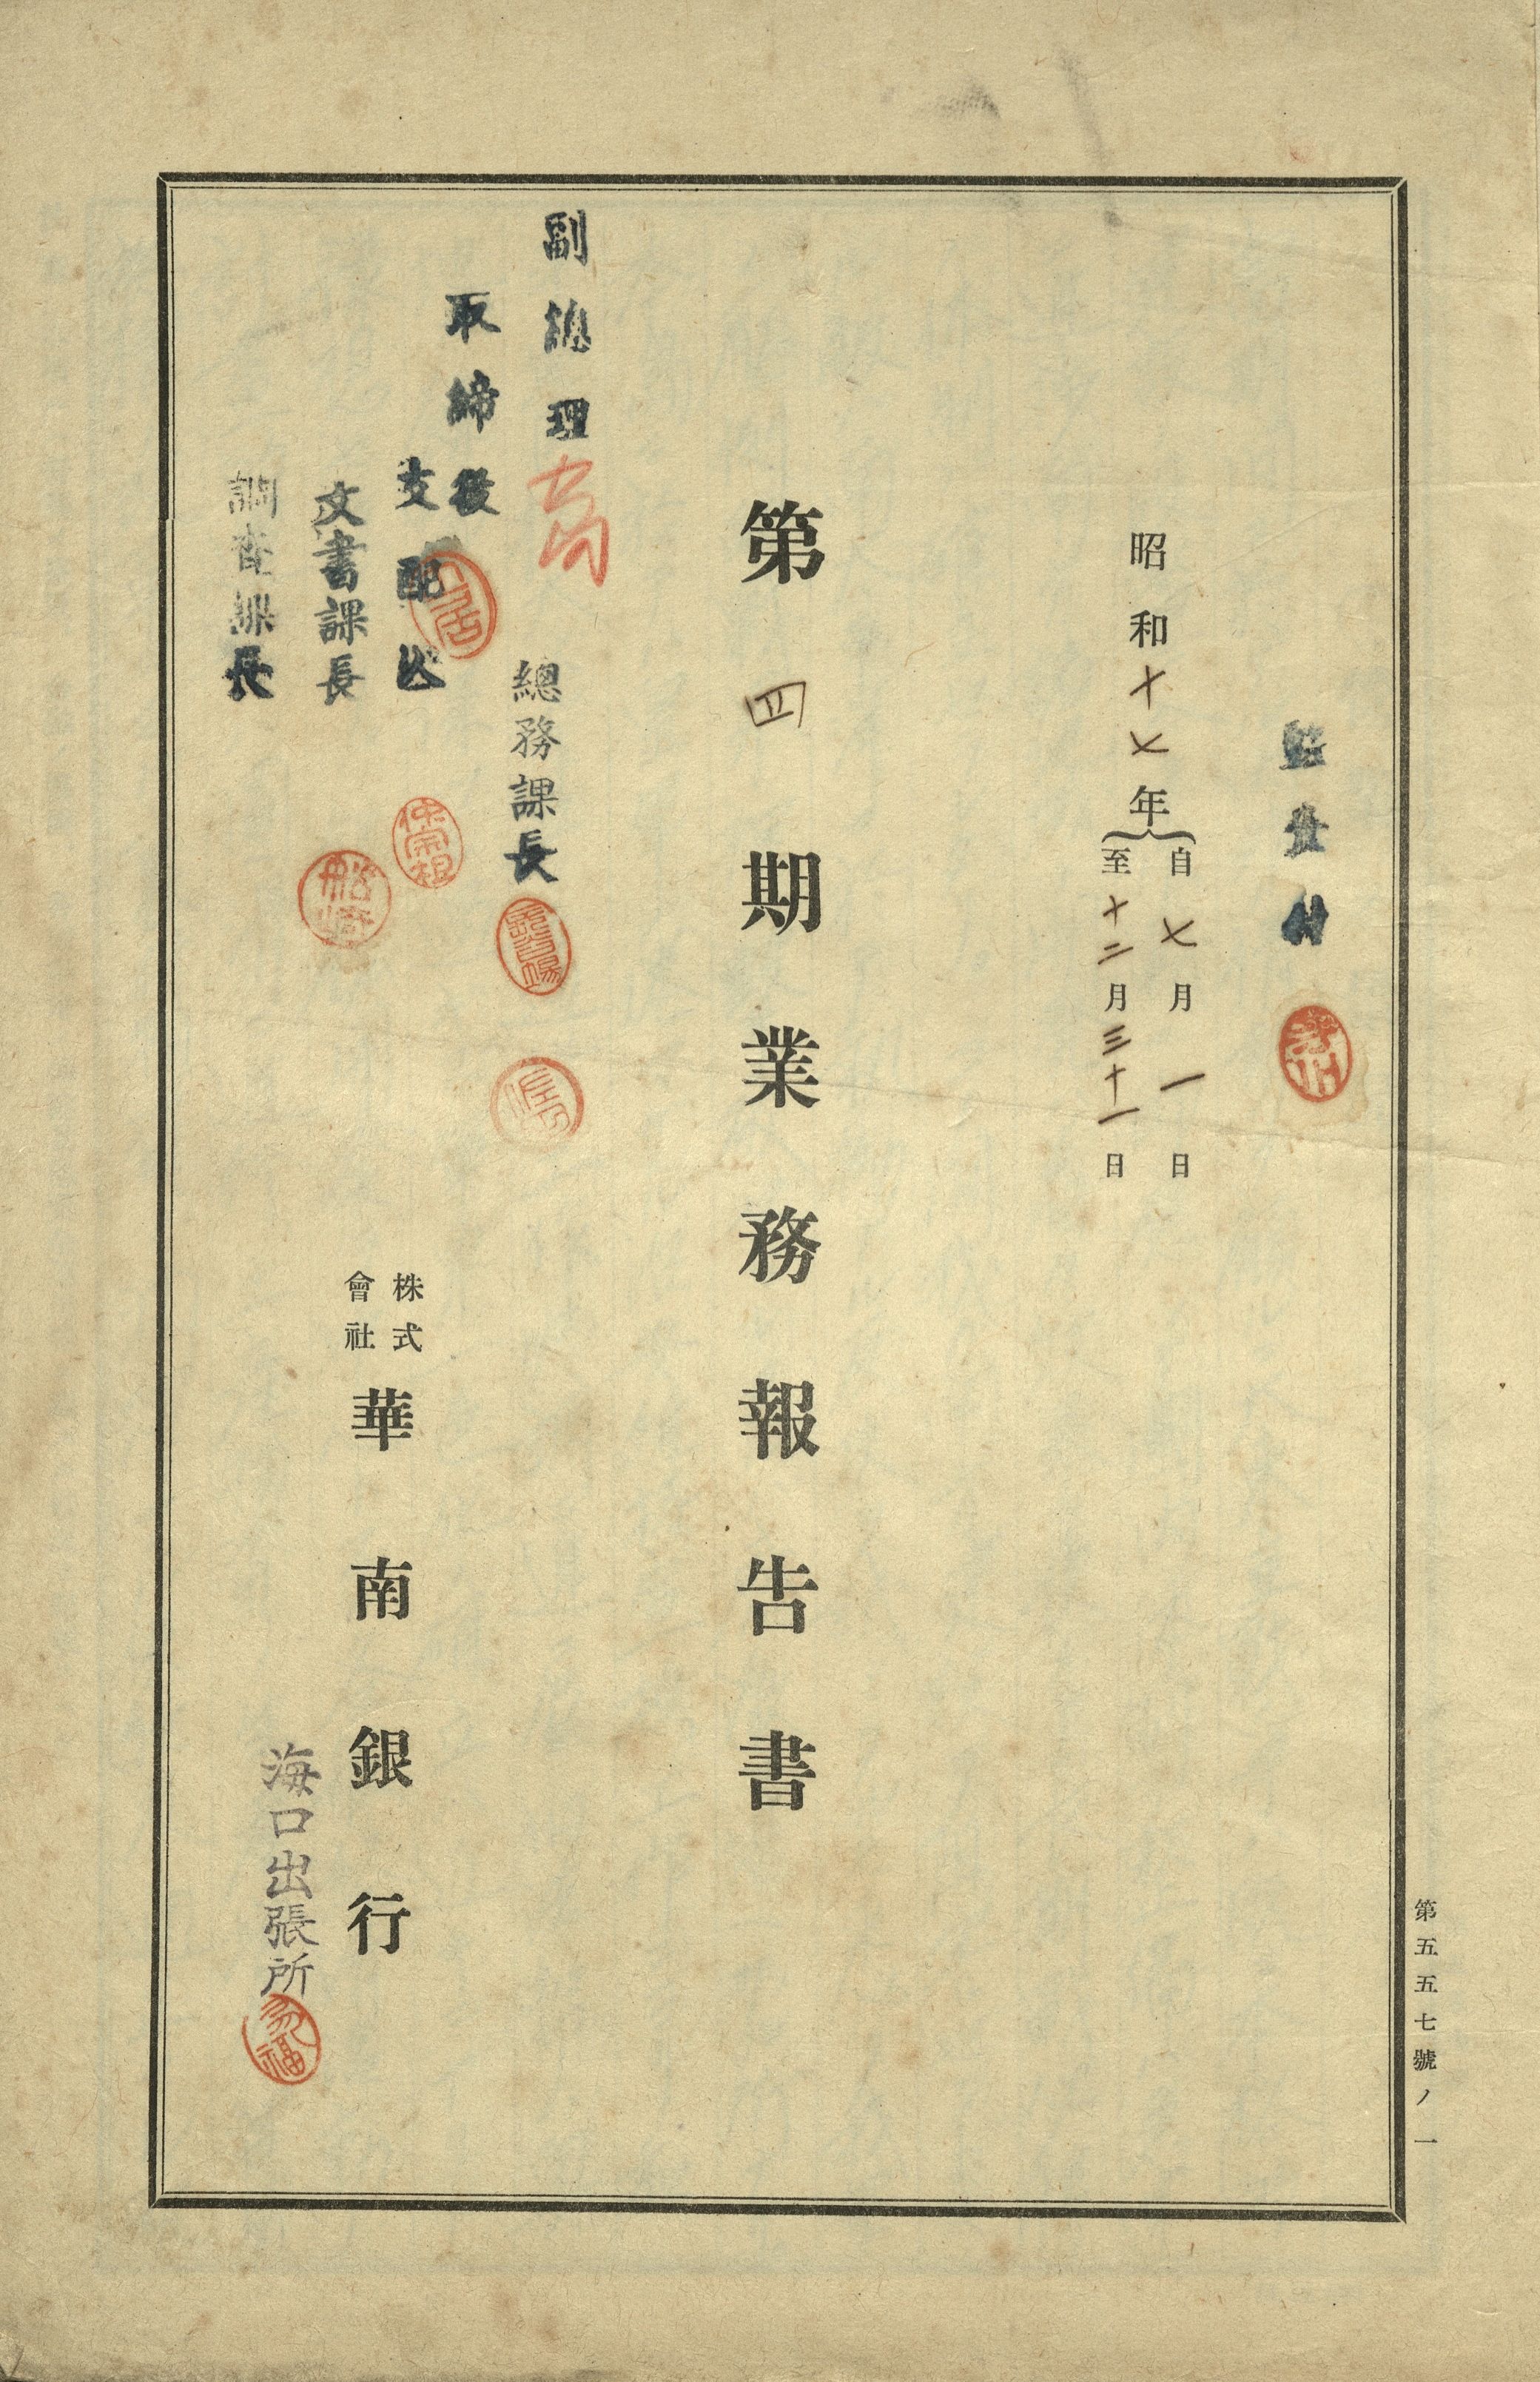 監査役
昭和十七年
自七月一日
至十二月三十一日
第四期業務報告書
副總理
高
取締役
總務課長
支配人
文書課長
調査課長
仲宗根
船崎
株式會社華南銀行
海口出張所
第五五七號ノ一